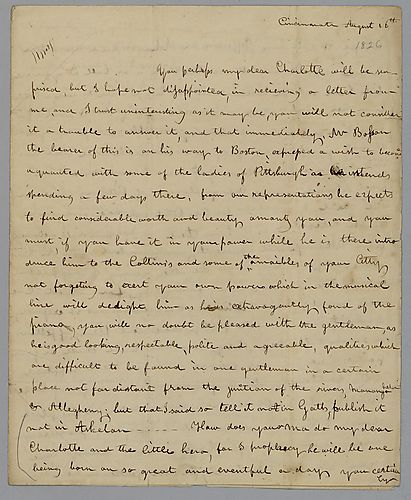 Cincinnati August 16th
1826
You perhaps my dear Charlotte will be sur-
prised, but I hope not disappointed, in recieving a letter from
me, and I trust uninteresting as it may be, you will not consider
it a trouble to answer it, and that immediately, Mr
the bearer of this is on his way to Boston, expressed a wish to become
aquanted with some of the ladies of Pittsburgh as he intends
spending a few days there, from our representations he expects
to find considerable worth and beauty among you, and you
must if you have it in your power while he is there intro
duce him to the and some of the amiables of your City
not forgetting to exert your own power which in the musical
line will delight him as he is extravagantly fond of the
piano, you will no doubt be pleased with the gentleman, as
he is good looking, respectable, polite and agreeable, qualities which
are difficult to be found in one gentleman in a certain
place not far distant from the juntion of the rivers, Monongahela
& Allegheny, but that I said so tell it not in Gath, publish it
not in Askelon ------ How does your ma do my dear
Charlotte and the little hero, for I prophecy he will be one
being born on so great and eventful a day, your certain